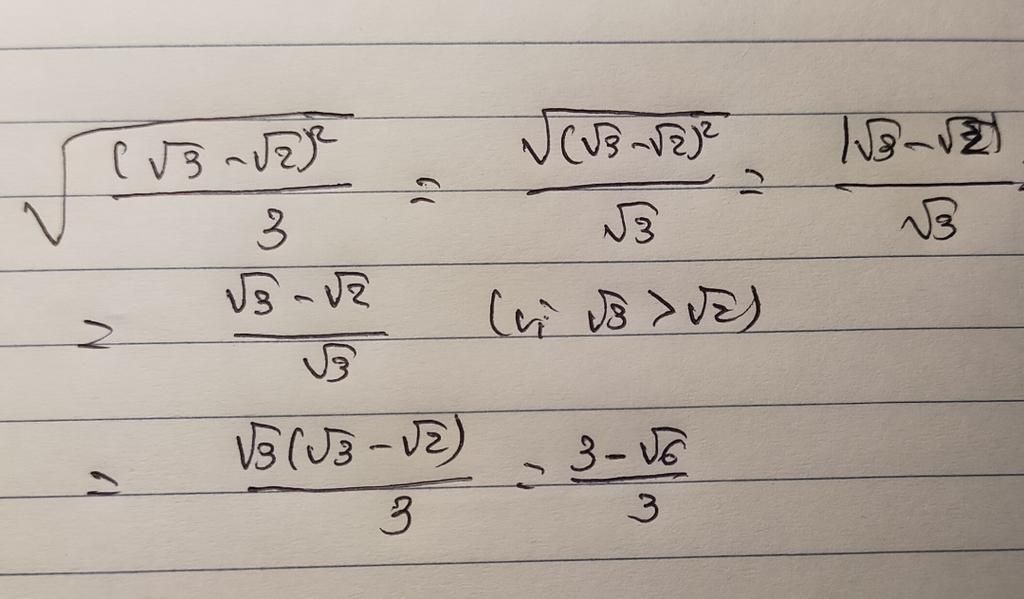 √((√3 - √2)² / 3) = √((√3 - √2)²) / √3 = |√3 - √2| / √3
= (√3 - √2) / √3 (vì √3 > √2)
= √3(√3 - √2) / 3 = (3 - √6) / 3